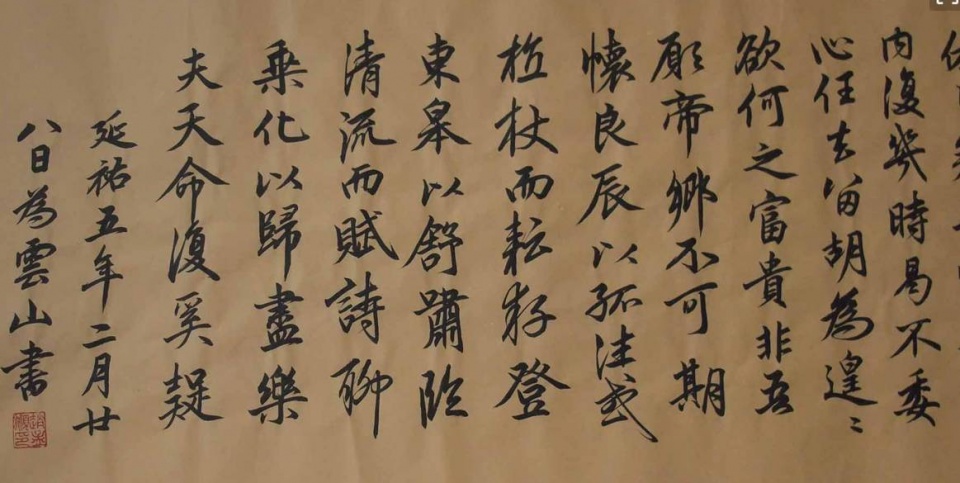 內復幾時曷不委
心任去留胡為遑〻
欲何之富貴非吾
願帝鄉不可期
懷良辰以孤往或
植杖而耘耔登
東皋以舒嘯臨
清流而賦詩聊
乘化以歸盡樂
夫天命復奚疑
延祐五年二月廿
八日為雲山書